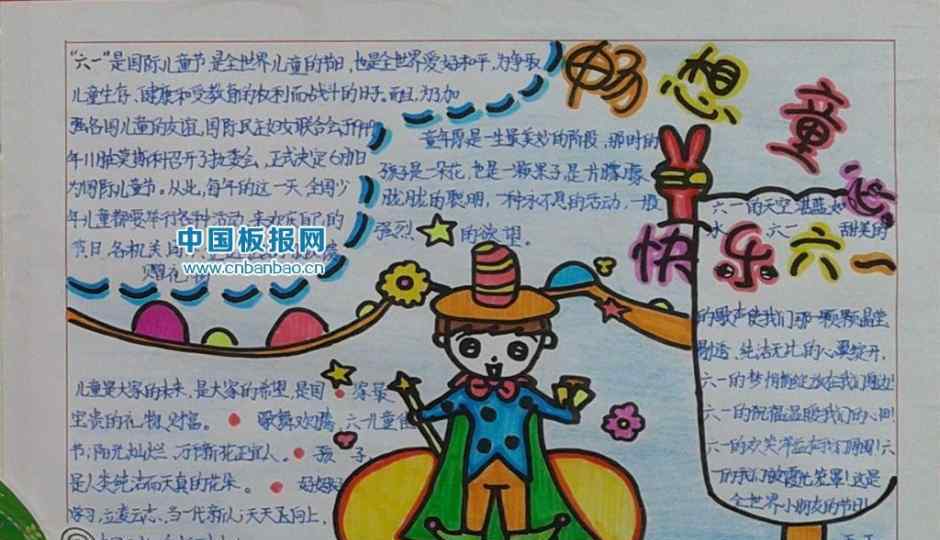 畅想童心
快乐六一
"六一"是国际儿童节,是全世界儿童的节日,也是全世界爱好和平,为争取
儿童生存、健康和受教育的权利而战斗的日子。而且,为了加
强各国儿童的友谊,国际民主妇女联合会于1949
年11月在莫斯科召开了执委会,正式决定6月1日
为国际儿童节。从此,每年的这一天,全国少
年儿童都要举行各种活动,来欢庆自己的
节日,各机关
中国板报网
www.cnbanbao.cn
童年原是一生最美妙的阶段,那时的
孩子是一朵花,也是一颗果子,是片朦朦
胧胧的聪明,一种永不息的活动,一股
强烈的欲望。
六一的天空湛蓝如
水 六一 甜美的
的歌声使我们那一颗颗晶莹
剔透、纯洁无比的心翼绽开,
六一的梦情愫绽放在我们周边!
六一的祝福温暖我们的心田!
六一的欢笑洋溢在我们周围!六
一的我们被霞光笼罩!这是
全世界小朋友的节日!
儿童是大家的未来,是大家的希望,是国家最
宝贵的礼物、财富。歌舞欢腾,六一儿童
节;阳光灿烂,万千新花正宜人。孩子,
是人类纯洁而天真的花朵。好好
学习,立凌云志,当一代新人;天天向上,